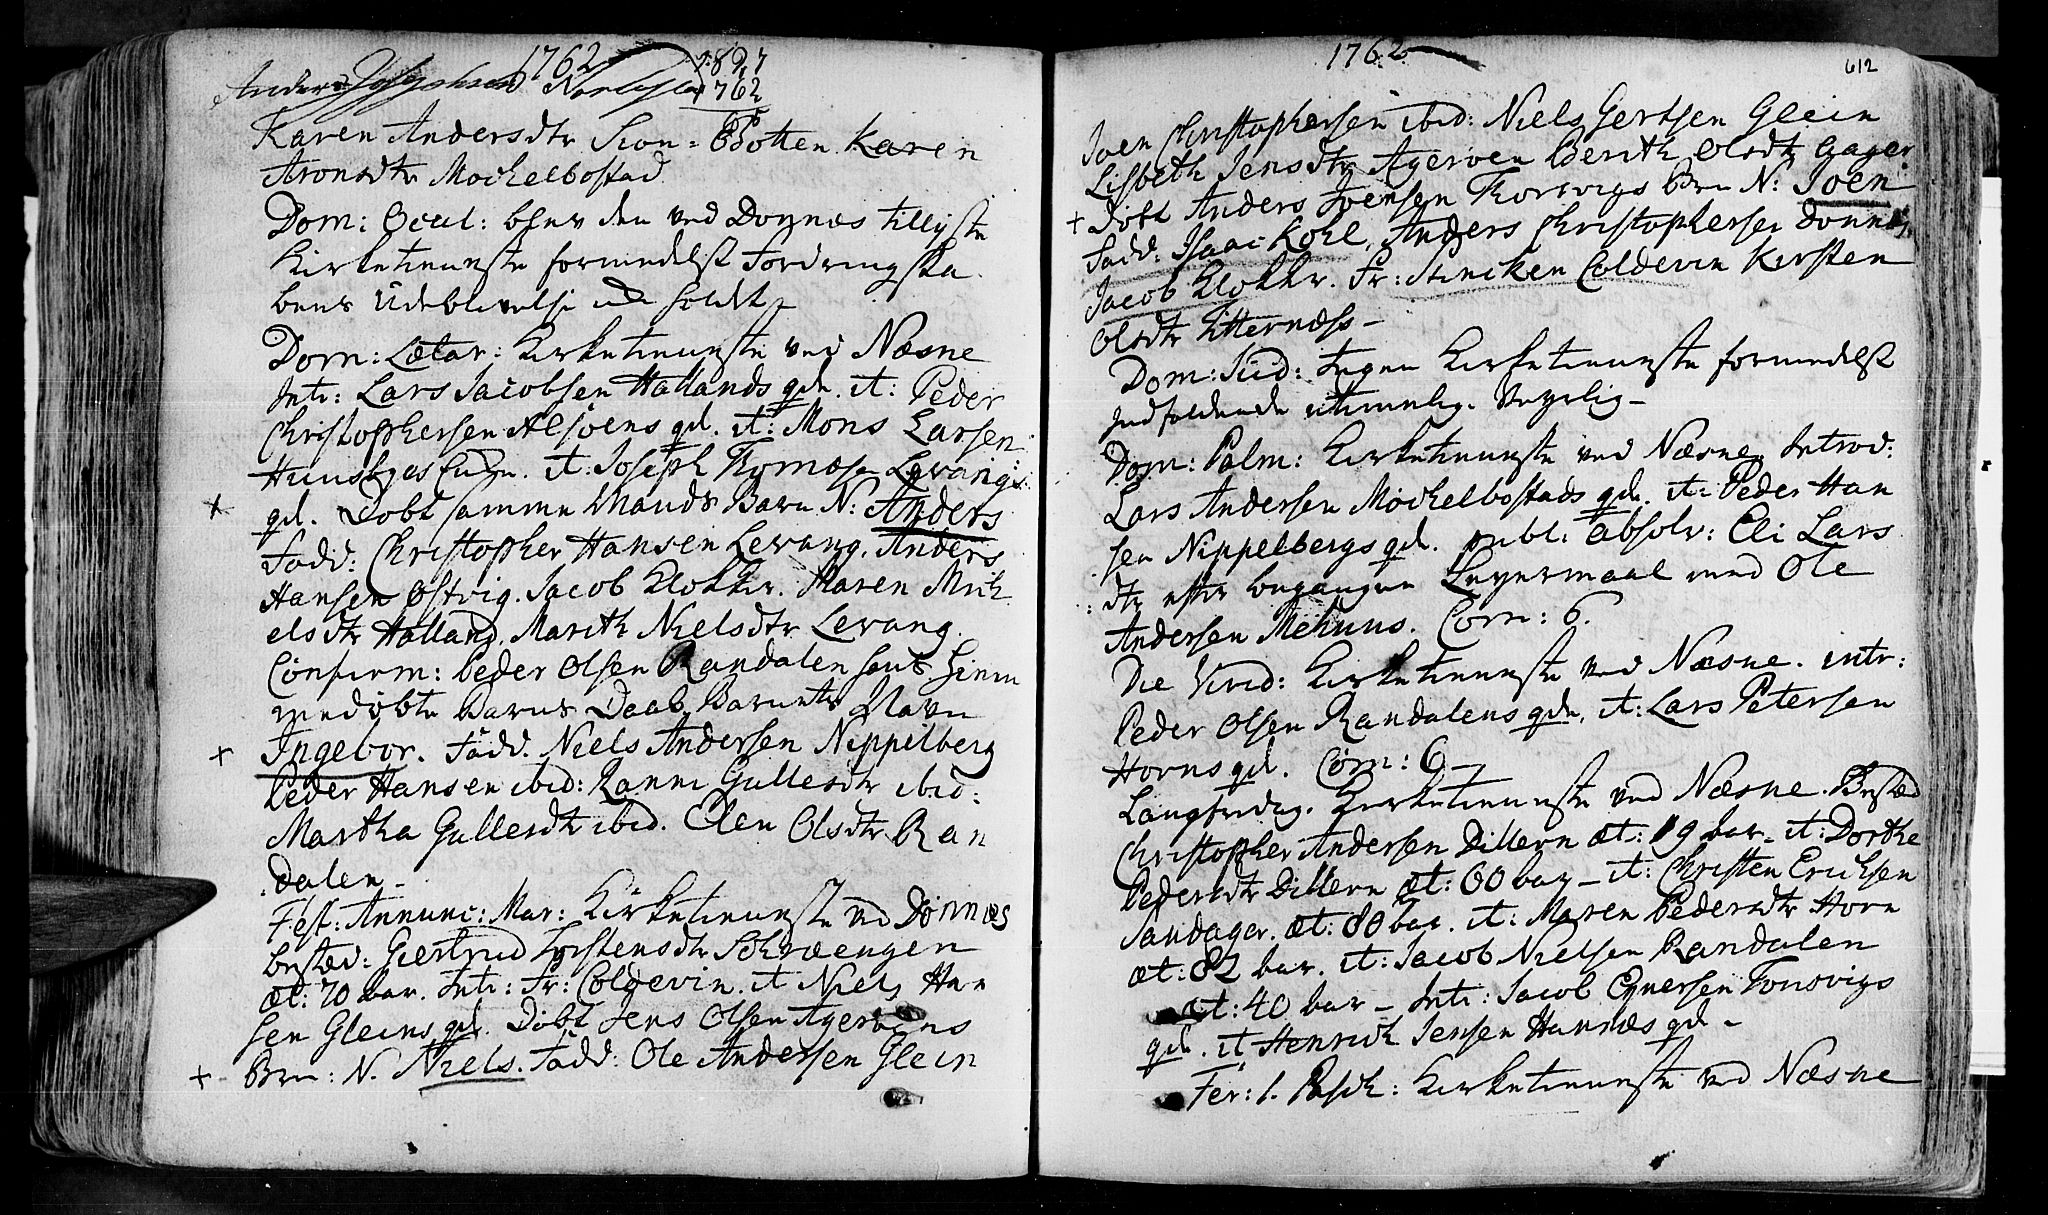 1762
1897
1762
Anders
Karen Andersdtr Skon= Botten. Karen
Aronsdtr Mockelbostad
Dom: Ocul: blev den ved Dønnæs tillyste
Kirketieneste formedelst Fordringska
bens Udeblivelse ei holdt
Dom: Lætar: Kirketieneste ved Næsne
Intr: Lars Jacobsen Hallands qd. it: Peder
Christophersen Alsøens qd. it: Mons Larsen
Huusbyes qd. it. Joseph Thomæsen Levangs
qd. Døbt samme Mands Barn N: Anders
Fadd: Christopher Hansen Levang. Anders
Hansen Østvig. Jacob Klokker. Maren Mich
elsdtr Halland. Marith Nielsdtr Levang.
Confirm: Peder Olsen Randalens hans hiem
medøbte Barns Daab. Barnets Navn
Ingebor. Fadd. Niels Andersen Nippelberg
Peder Hansen ibid: Ranni Gullesdtr ibid:
Martha Gullesdtr ibid. Elen Olsdtr Ran
dalen
Fest: Annunc: Mar: Kirketieneste ved Dönnæs
bested: Giertrud Torstensdtr Schvængen
æt: 70 aar. Intr: Fr: Coldevin. it Niels Han
sen Gleins qd. Döbt Jens Olsen Agerøens
Brn: N. Niels. Fadd: Ole Andersen Glein
1762
612
Joen Christophersen ibid: Niels Gertsen Glein
Lisbeth Jensdtr Agerøen Berith Olsdtr Gager
Døbt Anders Joensen Thorsvigs Brn N: Joen
Fadd: Isaac Kohl, Anders Christophersen Dønnes
Jacob Klokker. Fr: Anniken Coldevin Kirsten
Olsdtr Titternæss
Dom: Jud: Ingen Kirketieneste formedelst
Indfaldende utienlig Veyrlig
Dom: Palm: Kirketieneste ved Næsne. Introd:
Lars Andersen Mockelbostads qd. it: Peder Han
sen Nippelbergs qd. publ: absolv: Eli Lars
dtr efter begangen Leyermaal med Ole
Andersen Mehuus. Com: 6.
Die Virid: Kirketieneste ved Næsne. intr:
Peder Olsen Randalens qd, it: Lars Petersen
Horns qd. Com: 6
Langfredag. Kirketieneste ved Næsne. Bested
Christopher Andersen Dillern æt: 19 aar it: Dorthe
Pedersdtr Dillern æt: 60 aar it: Christen Erichsen
Sandager. æt: 80 aar. it: Maren Pedersdtr Horn
æt: 82 aar. it: Jacob Nielsen Randalen
æt: 40 aar Intr: Jacob Eynersen Tonsvigs
qd. it Henrich Jensen Hannæs qd
Fer: 1. Pasch: Kirketieneste ved Næsne